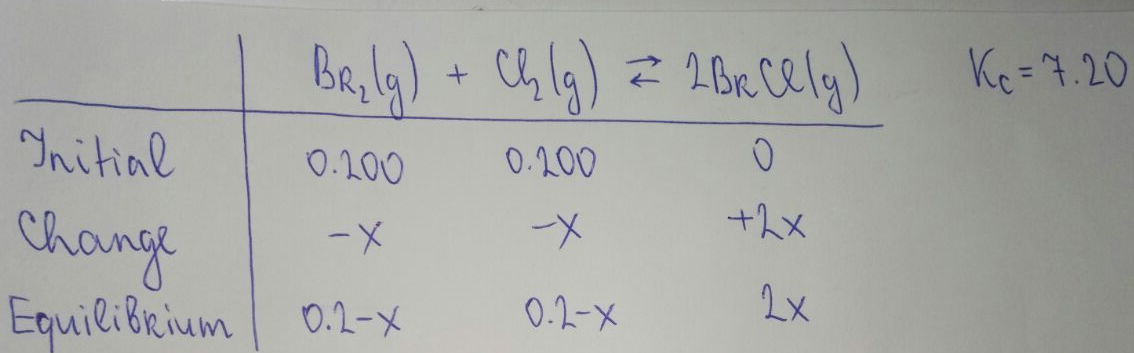 Br₂(g) + Cl₂(g) ⇄ 2BrCl(g) Kc = 7.20
Initial 0.200 0.200 0
Change -x -x +2x
Equilibrium 0.2-x 0.2-x 2x